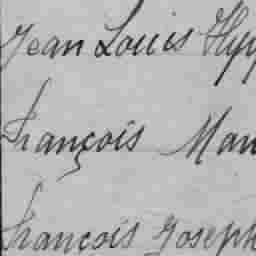 Jean Louis Hyp
François Mar
François Joseph